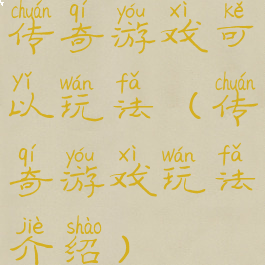 chuán qí yóu xì kě
传奇游戏可
yǐ wán fǎ chuán
以玩法（传
qí yóu xì wán fǎ
奇游戏玩法
jiè shào
介绍）